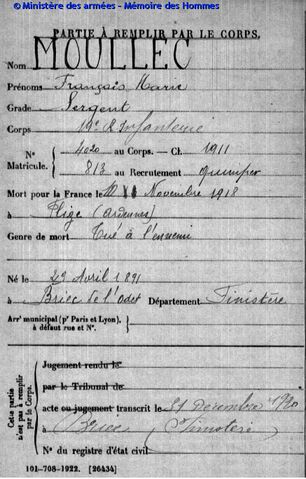 © Ministère des armées - Mémoire des Hommes
PARTIE À REMPLIR PAR LE CORPS.
Nom MOULLEC
Prénoms François Marie
Grade Sergent
Corps 19e R Infanterie
N° 4020 au Corps. — Cl. 1911
Matricule. 813 au Recrutement Quimper
Mort pour la France le Novembre 1918
à (Ardennes)
Genre de mort Tué à l'ennemi
Né le 29 Avril 1891
à Briec de l'Odet Département Finistère
Arr<sup>t</sup> municipal (p<sup>r</sup> Paris et Lyon),
à défaut rue et N°.
Cette partie
n'est pas à remplir
par le Corps.
Jugement rendu le
par le Tribunal de
acte ou jugement transcrit le 31 décembre 1920
à Briec (Finistère)
N° du registre d'état civil
101-708-1922. [26434]